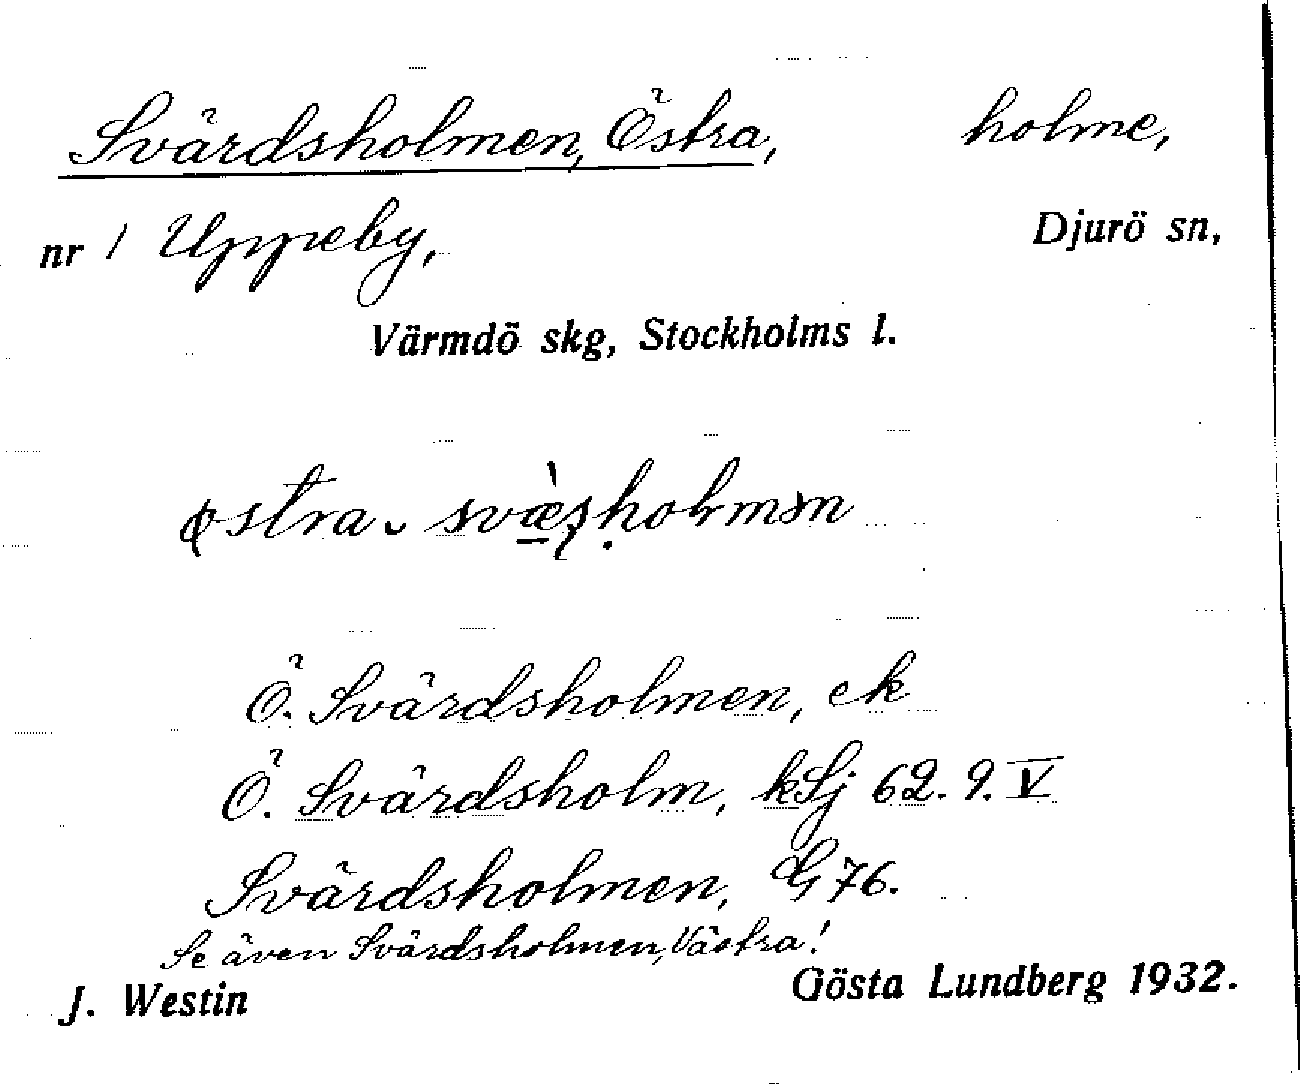 Svärdsholmen, Östra, holme,
nr 1 Uppeby, Djurö sn,
Värmdö skg, Stockholms l.
Ö. Svärdsholmen, ek
Ö. Svärdsholm, kSj 62. 9. V
Svärdsholmen, G 76.
Se även Svärdsholmen, Västra!
J. Westin Gösta Lundberg 1932.